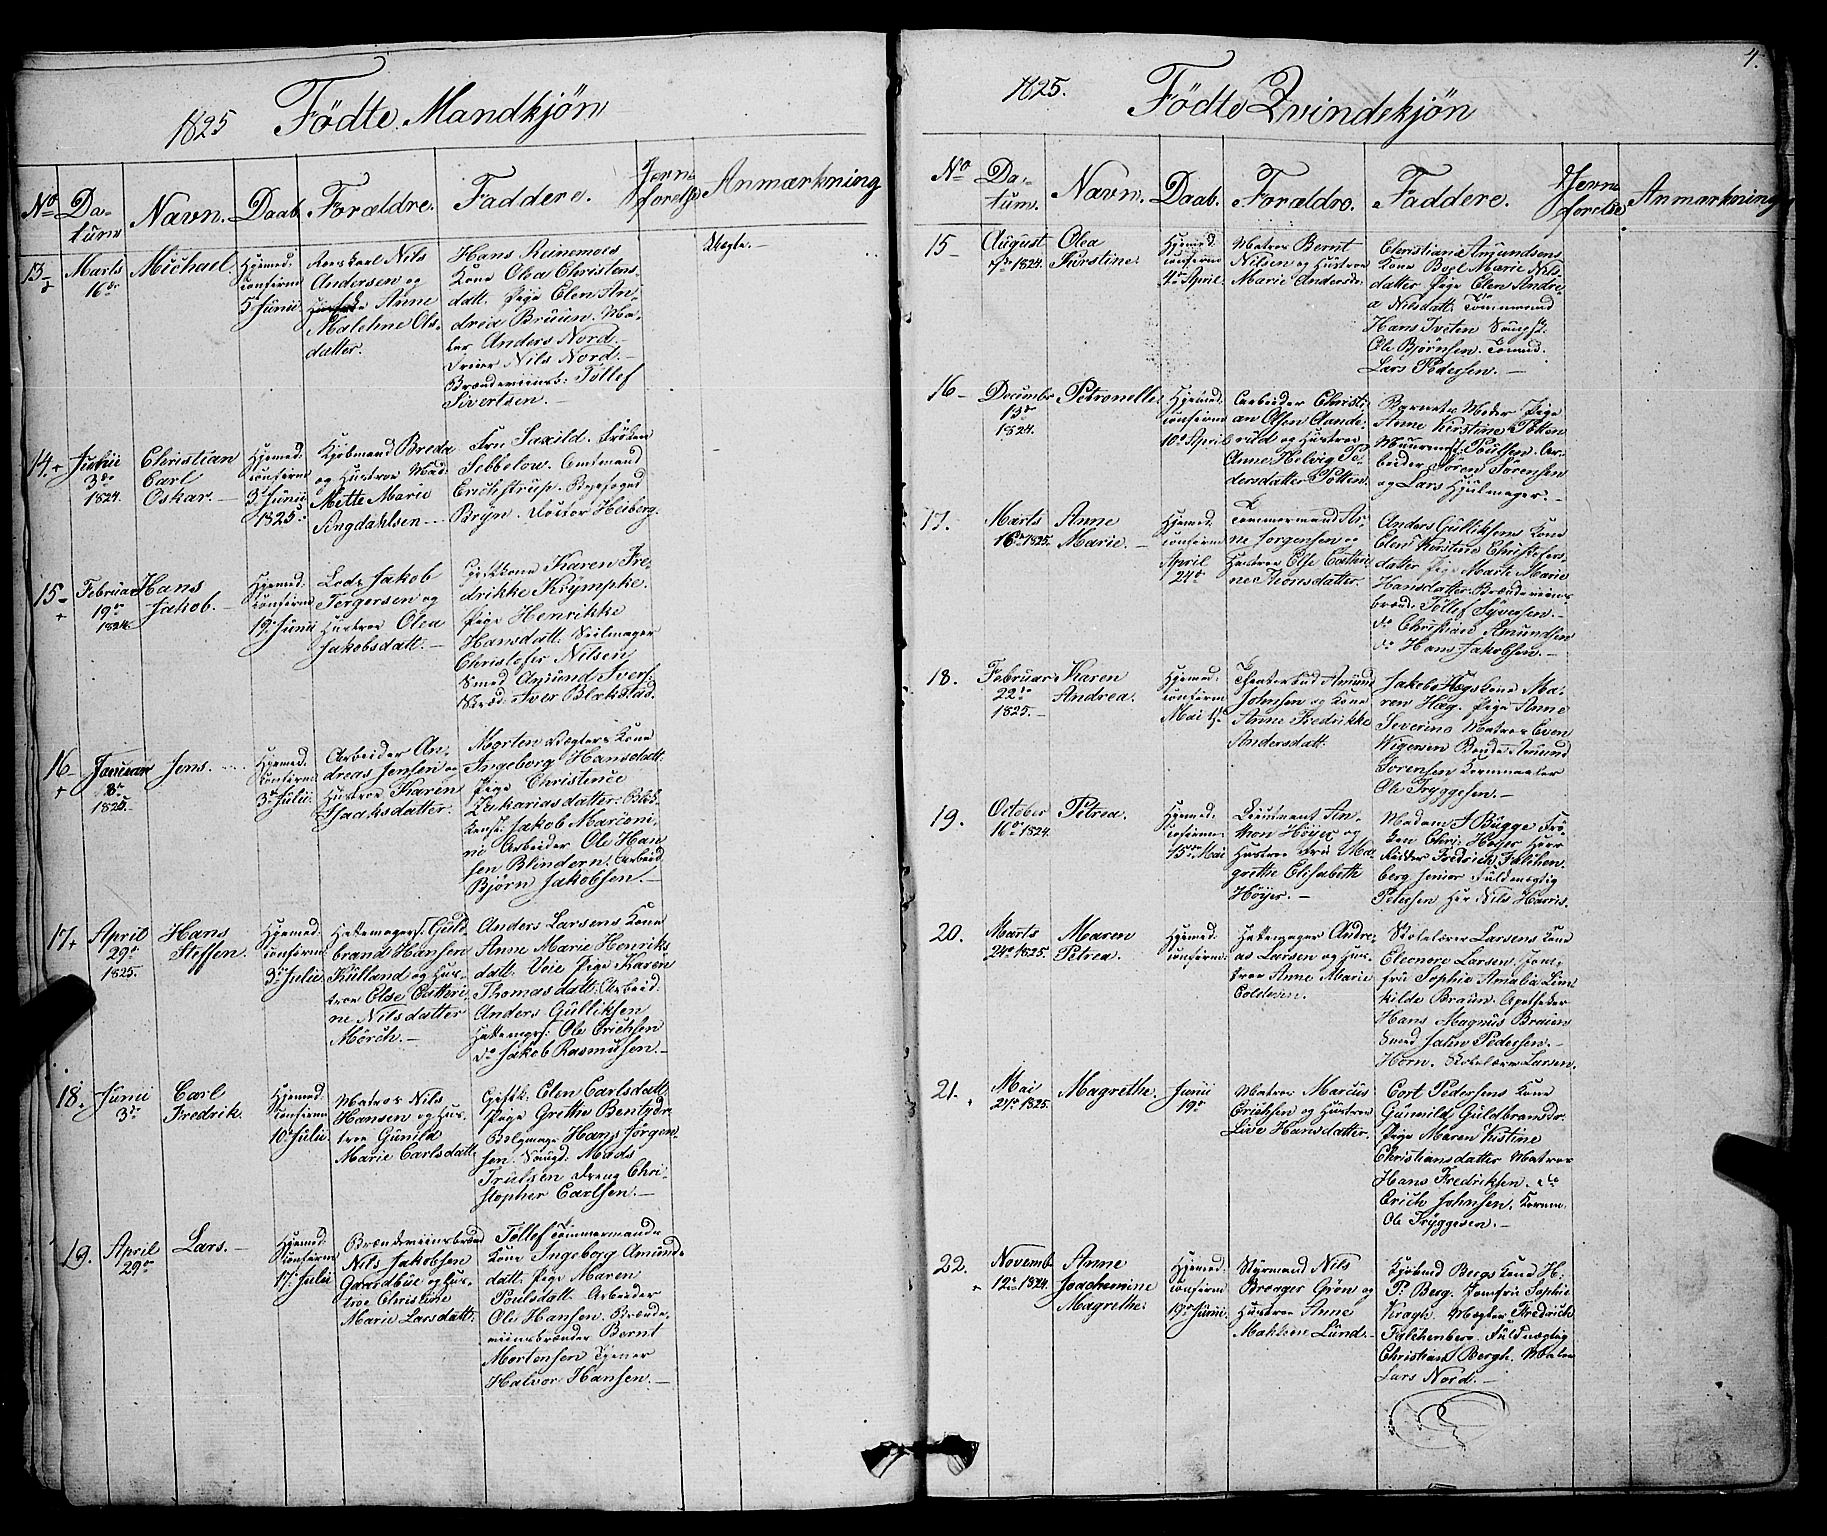 1825 Födte Mandkjön
No Datum Navn. Daab. Forældre. Faddere. Jevnforelse Anmærkning
13
Marts
16de
Michael.
Hjemed:
confirm
5 Junii
Nils
Andersen og
Anne
Malehne Ols-
datter.
Hans
Kone Olea Christens
datt. Pige Elen An-
drea Bruun. Ma-
ler Anders Nord.
Nils Nord.
Tollef
Sivertsen.
Uægte.
14
3de
1824
Christian
Carl
Oskar.
Hjemed:
confirm
3 Junii
1825
Kjöbmand Breda
og Hustroe Mad:
Mette Marie
Angdahlsen
Fru Saxild. Fröken
Sebbelow. Amtmand
Erichstrup. Byefoged
Bryn. Doctor Heiberg.
15
Februar
19de
1824
Hans
Jakob.
Hjemed:
confirm
19 Junii
Lods Jakob
Tergersen og
Hustroe Olea
Jakobsdatt.
Karen Fre-
drikke Krympke.
Pige Henrikke
Hansdatt: Seilmager
Christofer Nilsen
Smed Amund Ivers:
Iver Blakstad.
16
Januar
8de
1825.
Jens.
Hjemed:
confirm
3de Julii
Arbeider An-
dreas Jensen og
Hustroe Karen
Isaaksdatter.
Morten Kone
Ingeborg Hansdatt:
Pige Christence
Zakariasdatter:
Jakob Marconi-
ni Arbeider Ole Han
sen Blindern. Arbeid
Björn Jakobsen.
17
April
29de
1825.
Hans
Steffen.
Hjemed:
confirm
3de Julii
Hattemagers: Guld
brand Hansen
Kulland og Hus-
troe Else Catteri-
ne Nilsdatter
Mörch.
Anders Larsens Kone
Anne Marie Henriks
datt: Voie Pige Karen
Thomasdatt: Arbeid:
Anders Gulliksen
Ole Erichsen
do Jakob Rasmusen.
18.
Junii
3de
Carl
Fredrik.
Hjemed:
confirm
10 Julii
Matros Nils
Hansen og Hus-
troe Gunild
Marie Carlsdatt.
Elen Carlsdatt
Pige Grethe
Hans Jörgen-
sen. Mads
Truelsen Dreng Chri-
stopher Carlsen.
19.
April
29de
Lars.
Hjemed:
confirm
17 Julii
Nils Jakobsen
og Hus-
troe Christine
Marie Larsdatt:
Tollef Tömmermands
Kone Ingeborg Amunds
datt. Pige Maren
Poulsdatt. Arbeider
Ole Hansen. Brænde-
viinsbrænder Bernt
Mortensen Tjener
Halvor Hansen.
4.
1825. Födte Qvindekjön
No Datum. Navn. Daab. Forældre. Faddere. Jevnforelse Anmarkning
15
August
7de 1824.
Olea
Kirstine.
Hjemed:
confirm
4de April.
Matros Bernt
Nilsen og Hustroe
Marie Andersdr
Christian Amundsens
Kone Boel Marie Nils-
datter Pige Elen Andre-
a Nilsdatt: Tömmermd
Hans Iveten
Ole Björnsen. Tömmd.
Lars Pedersen.
16
Decembr
13de
1824.
Petronelle.
Hjemed:
confirm
10de April
Arbeider Christi-
an Olsen
og Hustroe
Anne Helvig Pe-
dersdatter Potten.
Barnets Moder Pige
Anne Kirstine Potten
Muurmst: Poulsen. Ar-
beider Sören Sörensen
og Lars Hjulmager.
17.
Marts
16de 1825.
Anne
Marie.
Hjemed:
confirm
April
24de
Tömmermand Ar-
ne Jorgensen og
Hustroe Else Cathri
ne Thorsdatter.
Anders Gulliksens Kone
Elen Kirstine Christofers-
datter Pige Marte Marie
Hansdatter. Brændeviins-
brænd: Tollef Syversen.
do Christian Amundsen
do Hans Jakobsen.
18.
Februar
22de
1825.
Karen
Andrea.
Hjemed:
confirm
Mai
Theaterbud Amund
Johnsen og Kone
Anne Fredrikke
Andersdatt.
Jakob Høgs Kone Ma-
ren Høg. Pige Anne
Severine Matros Even
Wigersen
Sorensen Kornmaaler
Ole Tryggesen.
19.
October
16de 1824.
Petrea.
Hjemed:
confirm
15de Mai
Lieutenant An-
thon Höyer og
Hustroe Fru Ma
grethe Elisabeth
Höyer.
Madam J Bugge Frö-
ken Chri: Höyer Herr
Ridder Fredrich Falchen-
berg Senior Fuldmægtig
Petersen Her Nils Harris.
20.
Marts
24de 1825.
Maren
Petrea.
Hjemed:
confirm
Hattemager Andre-
as Larsen og Hus-
troe Anne Marie
Coldevin.
Larsens Kone
Eleonore Larsen. Jom-
fru Sophie Amalia Lim
kilde Braun. Apotheker
Hans Magnus Braun
Smed Pedersen.
Horn. Larsen.
21.
Mai
21de 1825.
Magrethe.
Junii
19de
Matros Marcus
Erichsen og Hustroe
Live Hansdatter.
Cort Pedersens Kone
Gunild Guldbransdr.
Pige Maren Kistine
Christiansdatter Matros
Hans Fredriksen. do
Erich Johnsen. Kornm:
Ole Tryggesen.
22.
Novemb
12de 1824.
Anne
Joachemine
Magrethe.
Hjemed:
confirm
19de Junii.
Styrmand Nils
Braager Grön og
Hustroe Anne
Makken Lund.
Kjöbmd Bergs Kone H:
P: Berg. Jomfru Sophie
Kragh. Mægler Fredrich
Falchenberg. Fuldmægtig
Christian Bergh. Maler
Lars Nord.